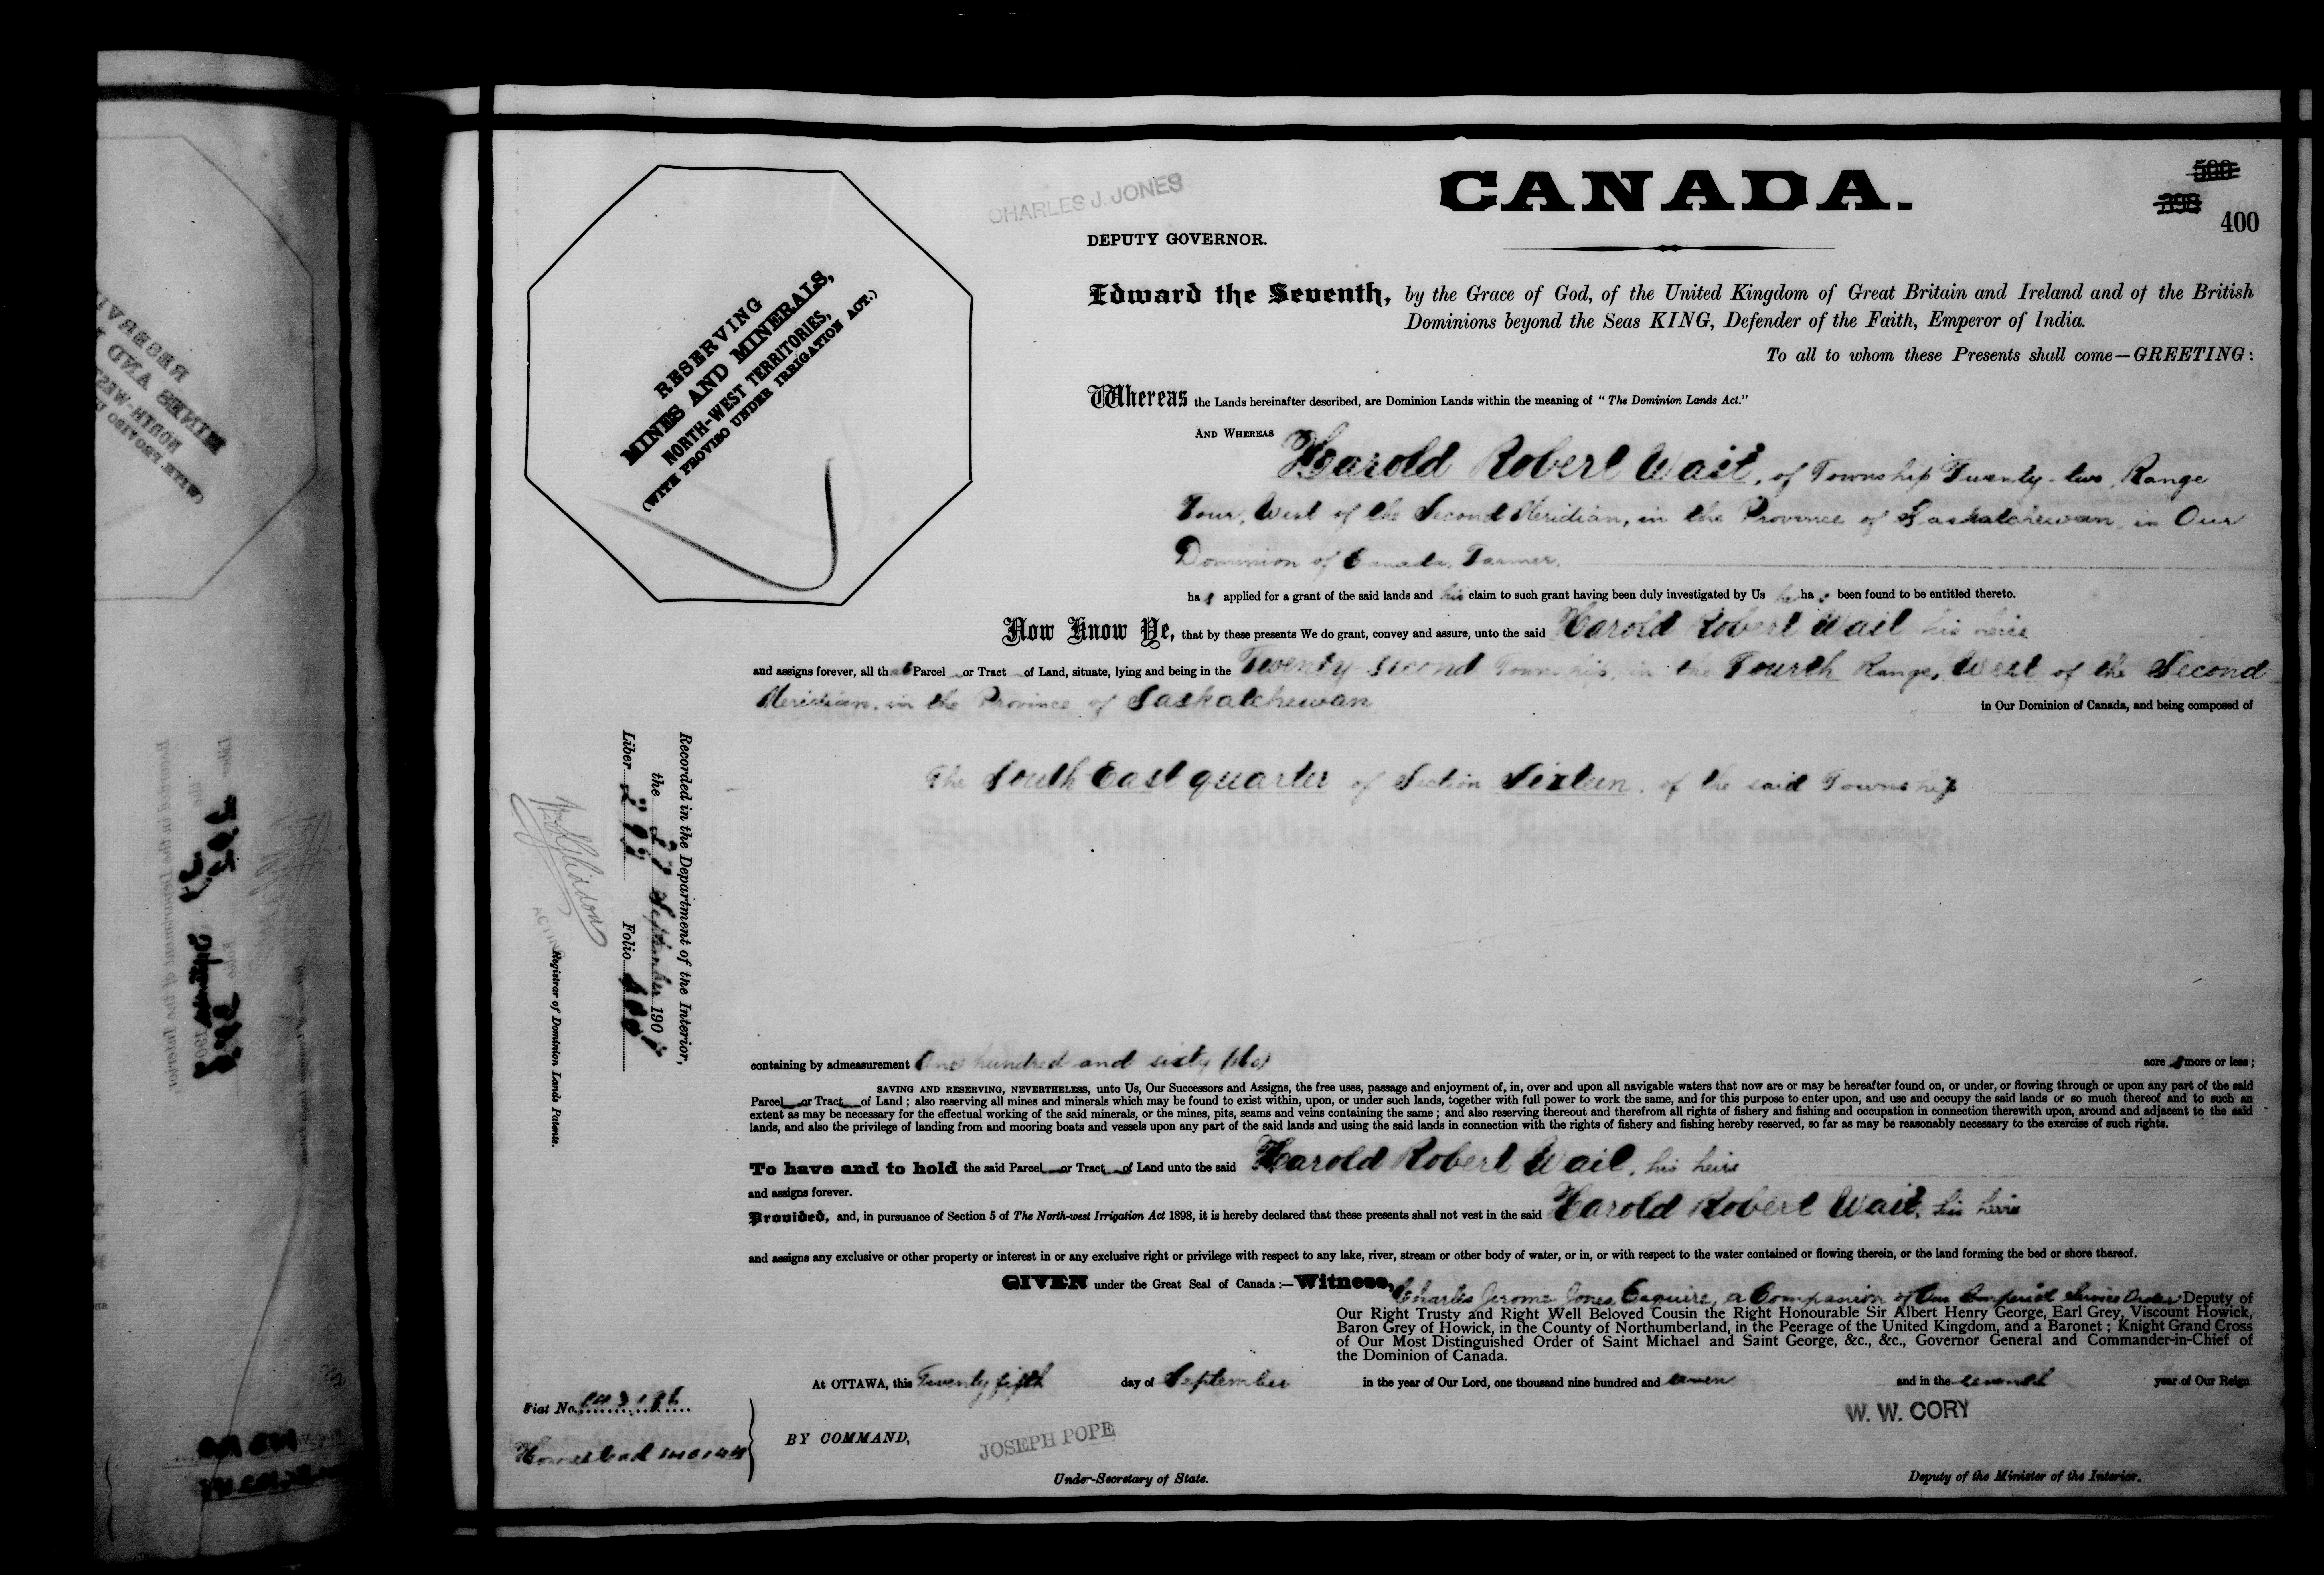 CANADA.
500
398
400
CHARLES J. JONES
DEPUTY GOVERNOR.
RESERVING
MINES AND MINERALS,
NORTH-WEST TERRITORIES,
(WITH PROVISO UNDER IRRIGATION ACT.)
Edward the Seventh, by the Grace of God, of the United Kingdom of Great Britain and Ireland and of the British
Dominions beyond the Seas KING, Defender of the Faith, Emperor of India.
To all to whom these Presents shall come—GREETING:
Whereas the Lands hereinafter described, are Dominion Lands within the meaning of "The Dominion Lands Act."
AND WHEREAS Harold Robert Wait, of Township Twenty-two, Range
Four, West of the Second Meridian, in the Province of Saskatchewan, in Our
Dominion of Canada, Farmer,
has applied for a grant of the said lands and his claim to such grant having been duly investigated by Us he has been found to be entitled thereto.
Now Know Ye, that by these presents We do grant, convey and assure, unto the said Harold Robert Wait his heirs
and assigns forever, all that Parcel or Tract of Land, situate, lying and being in the Twenty-second Township, in the Fourth Range, West of the Second
Meridian, in the Province of Saskatchewan in Our Dominion of Canada, and being composed of
The South East quarter of Section Sixteen, of the said Township
Recorded in the Department of the Interior,
the 27 September 190
Liber Folio 400
ACTING Registrar of Dominion Lands Patents.
containing by admeasurement One hundred and sixty (160) acres more or less;
SAVING AND RESERVING, NEVERTHELESS, unto Us, Our Successors and Assigns, the free uses, passage and enjoyment of, in, over and upon all navigable waters that now are or may be hereafter found on, or under, or flowing through or upon any part of the said
Parcel or Tract of Land; also reserving all mines and minerals which may be found to exist within, upon, or under such lands, together with full power to work the same, and for this purpose to enter upon, and use and occupy the said lands or so much thereof and to such an
extent as may be necessary for the effectual working of the said minerals, or the mines, pits, seams and veins containing the same; and also reserving thereout and therefrom all rights of fishery and fishing and occupation in connection therewith upon, around and adjacent to the said
lands, and also the privilege of landing from and mooring boats and vessels upon any part of the said lands and using the said lands in connection with the rights of fishery and fishing hereby reserved, so far as may be reasonably necessary to the exercise of such rights.
To have and to hold the said Parcel or Tract of Land unto the said Harold Robert Wait, his heirs
and assigns forever.
Provided, and, in pursuance of Section 5 of The North-west Irrigation Act 1898, it is hereby declared that these presents shall not vest in the said Harold Robert Wait, his heirs
and assigns any exclusive or other property or interest in or any exclusive right or privilege with respect to any lake, river, stream or other body of water, or in, or with respect to the water contained or flowing therein, or the land forming the bed or shore thereof.
GIVEN under the Great Seal of Canada:—Witness, Charles Jerome Jones Esquire, a Companion of Our Imperial Service Order Deputy of
Our Right Trusty and Right Well Beloved Cousin the Right Honourable Sir Albert Henry George, Earl Grey, Viscount Howick,
Baron Grey of Howick, in the County of Northumberland, in the Peerage of the United Kingdom, and a Baronet; Knight Grand Cross
of Our Most Distinguished Order of Saint Michael and Saint George, &c., &c., Governor General and Commander-in-Chief of
the Dominion of Canada.
At OTTAWA, this Twenty fifth day of September in the year of Our Lord, one thousand nine hundred and seven and in the seventh year of Our Reign.
Fiat No.
Homestead
BY COMMAND,
JOSEPH POPE
Under-Secretary of State.
W. W. CORY
Deputy of the Minister of the Interior.